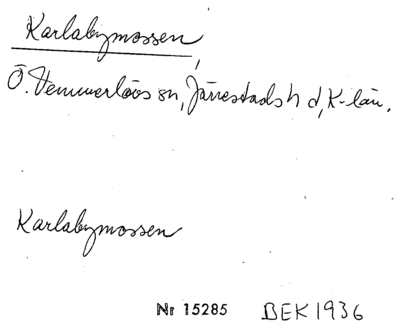 Karlabymossen,
Ö. Vemmerlövs sn, Järrestads hd, K-län.
Karlabymossen
Nr 15285 BEK 1936